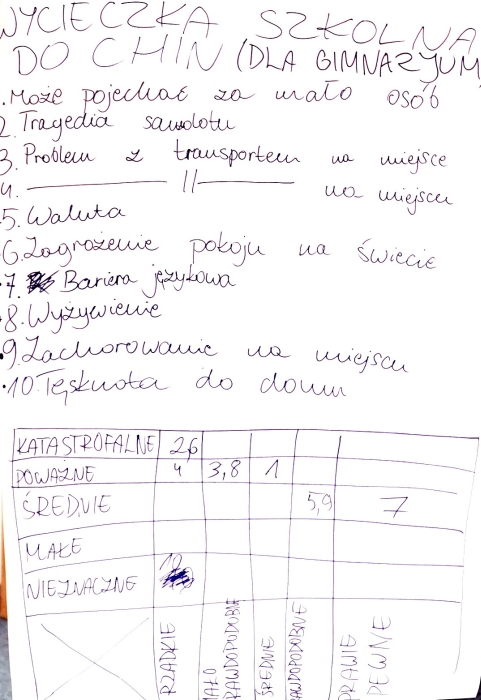 WYCIECZKA SZKOLNA
DO CHIN (DLA GIMNAZJUM
1. Może pojechać za mało osób
2. Tragedia samolotu
3. Problem z transportem na miejsce
4. ——————— || ——————— na miejscu
5. Waluta
6. Zagrożenie pokoju na świecie
7. Bariera językowa
8. Wyżywienie
9. Zachorowanie na miejscu
10. Tęsknota do domu
KATASTROFALNE 2,6
POWAŻNE 4 3,8 1
ŚREDNIE 5,9 7
MAŁE
NIEZNACZNE 10
RZADKIE
MAŁO PRAWDOPODOBNE
ŚREDNIE
PRAWDOPODOBNE
PRAWIE PEWNE